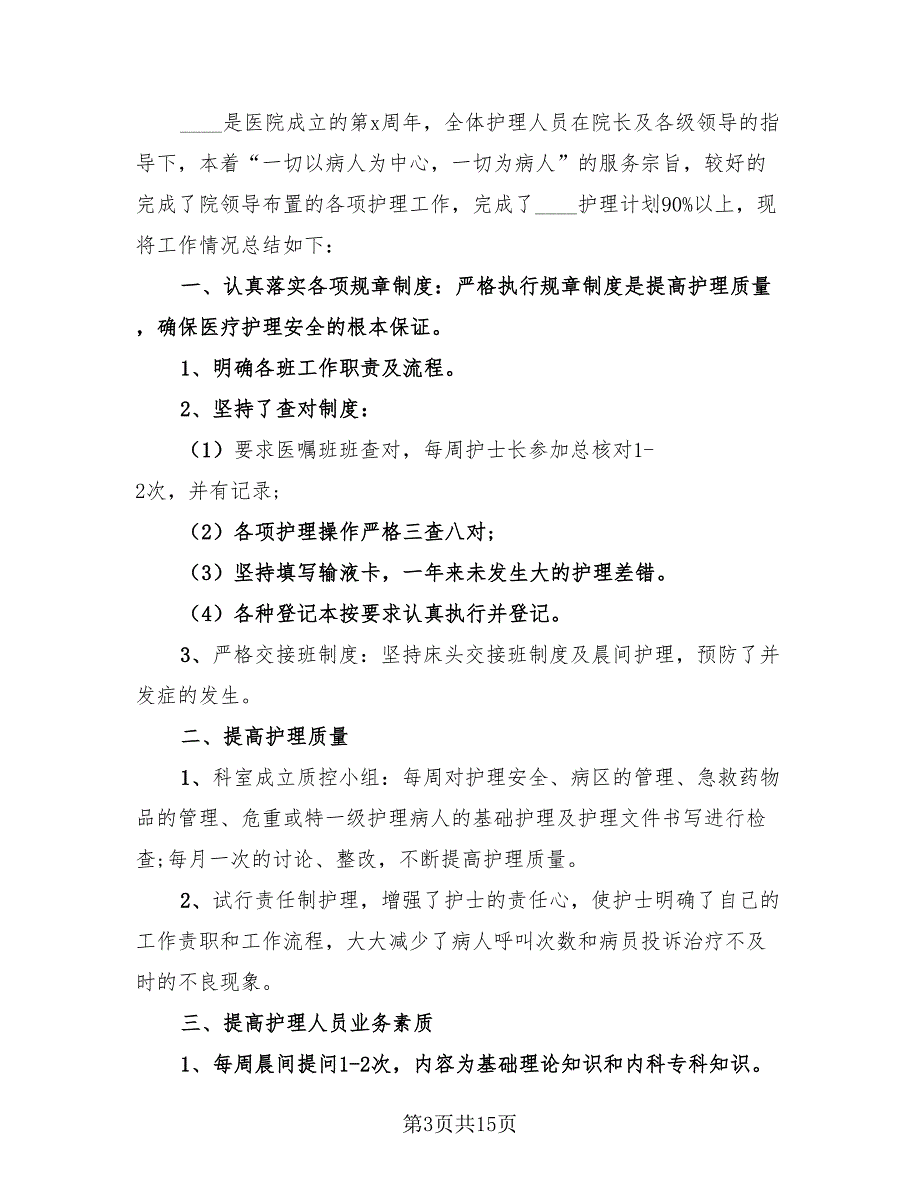 ____是医院成立的第x周年，全体护理人员在院长及各级领导的指
导下，本着“一切以病人为中心，一切为病人”的服务宗旨，较好的
完成了院领导布置的各项护理工作，完成了____护理计划90%以上，现
将工作情况总结如下：
一、认真落实各项规章制度：严格执行规章制度是提高护理质量
，确保医疗护理安全的根本保证。
1、明确各班工作职责及流程。
2、坚持了查对制度：
（1）要求医嘱班班查对，每周护士长参加总核对1-
2次，并有记录;
（2）各项护理操作严格三查八对;
（3）坚持填写输液卡，一年来未发生大的护理差错。
（4）各种登记本按要求认真执行并登记。
3、严格交接班制度：坚持床头交接班制度及晨间护理，预防了并
发症的发生。
二、提高护理质量
1、科室成立质控小组：每周对护理安全、病区的管理、急救药物
品的管理、危重或特一级护理病人的基础护理及护理文件书写进行检
查;每月一次的讨论、整改，不断提高护理质量。
2、试行责任制护理，增强了护士的责任心，使护士明确了自己的
工作责职和工作流程，大大减少了病人呼叫次数和病员投诉治疗不及
时的不良现象。
三、提高护理人员业务素质
1、每周晨间提问1-2次，内容为基础理论知识和内科专科知识。
第3页共15页